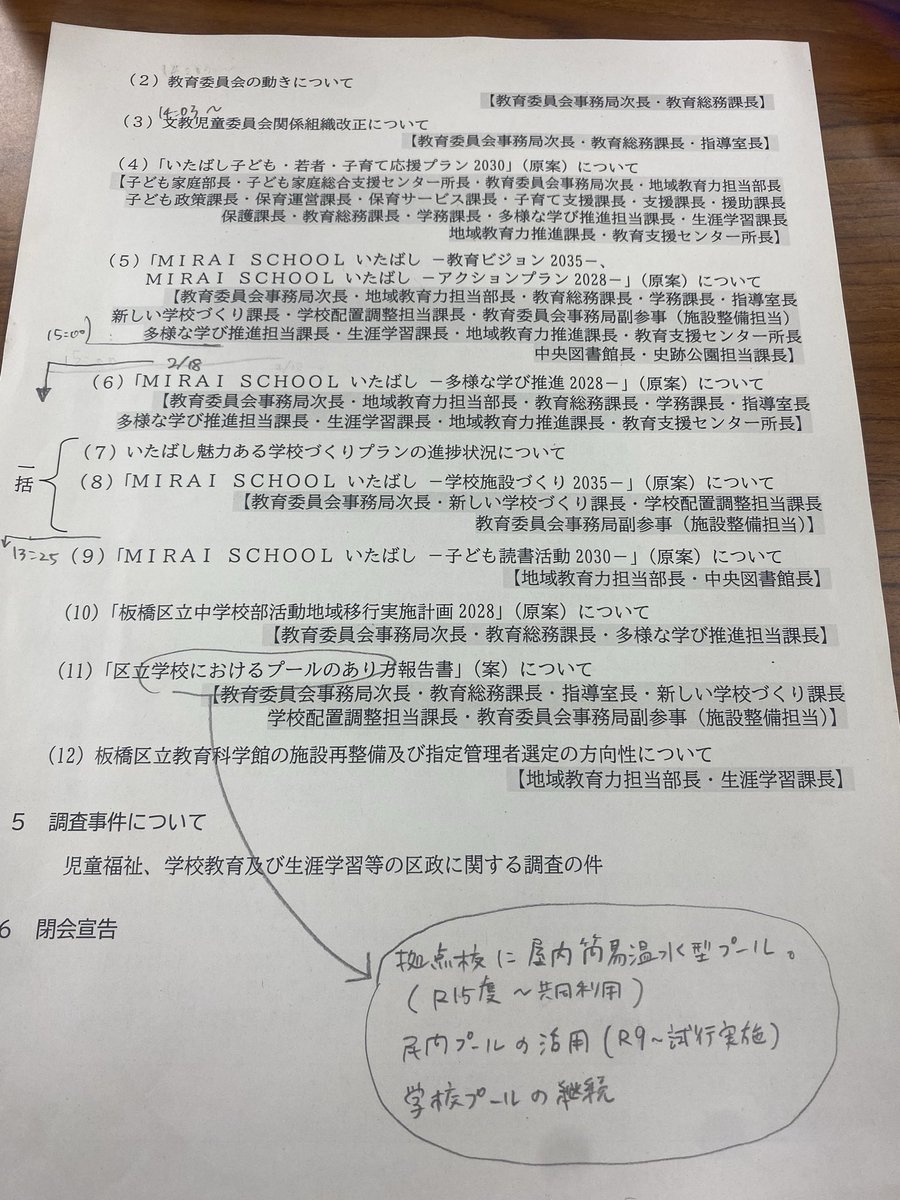 (2)教育委員会の動きについて
【教育委員会事務局次長・教育総務課長】
14:03～
(3)文教児童委員会関係組織改正について
【教育委員会事務局次長・教育総務課長・指導室長】
(4)「いたばし子ども・若者・子育て応援プラン2030」(原案)について
【子ども家庭部長・子ども家庭総合支援センター所長・教育委員会事務局次長・地域教育力担当部長
子ども政策課長・保育運営課長・保育サービス課長・子育て支援課長・支援課長・援助課長
保護課長・教育総務課長・学務課長・多様な学び推進担当課長・生涯学習課長
地域教育力推進課長・教育支援センター所長】
(5)「MIRAI SCHOOL いたばし －教育ビジョン2035－、
MIRAI SCHOOL いたばし －アクションプラン2028－」(原案)について
【教育委員会事務局次長・地域教育力担当部長・教育総務課長・学務課長・指導室長
新しい学校づくり課長・学校配置調整担当課長・教育委員会事務局副参事(施設整備担当)
15:00
多様な学び推進担当課長・生涯学習課長・地域教育力推進課長・教育支援センター所長
中央図書館長・史跡公園担当課長】
2/18
(6)「MIRAI SCHOOL いたばし －多様な学び推進2028－」(原案)について
【教育委員会事務局次長・地域教育力担当部長・教育総務課長・学務課長・指導室長
多様な学び推進担当課長・生涯学習課長・地域教育力推進課長・教育支援センター所長】
(7)いたばし魅力ある学校づくりプランの進捗状況について
一括
(8)「MIRAI SCHOOL いたばし －学校施設づくり2035－」(原案)について
【教育委員会事務局次長・新しい学校づくり課長・学校配置調整担当課長
教育委員会事務局副参事(施設整備担当)】
13:25
(9)「MIRAI SCHOOL いたばし －子ども読書活動2030－」(原案)について
【地域教育力担当部長・中央図書館長】
(10)「板橋区立中学校部活動地域移行実施計画2028」(原案)について
【教育委員会事務局次長・教育総務課長・多様な学び推進担当課長】
(11)「区立学校におけるプールのあり方報告書」(案)について
【教育委員会事務局次長・教育総務課長・指導室長・新しい学校づくり課長
学校配置調整担当課長・教育委員会事務局副参事(施設整備担当)】
(12)板橋区立教育科学館の施設再整備及び指定管理者選定の方向性について
【地域教育力担当部長・生涯学習課長】
5 調査事件について
児童福祉、学校教育及び生涯学習等の区政に関する調査の件
6 閉会宣告
拠点校に屋内簡易温水型プール。
(R15度～共同利用)
民内プールの活用(R9～試行実施)
学校プールの継続